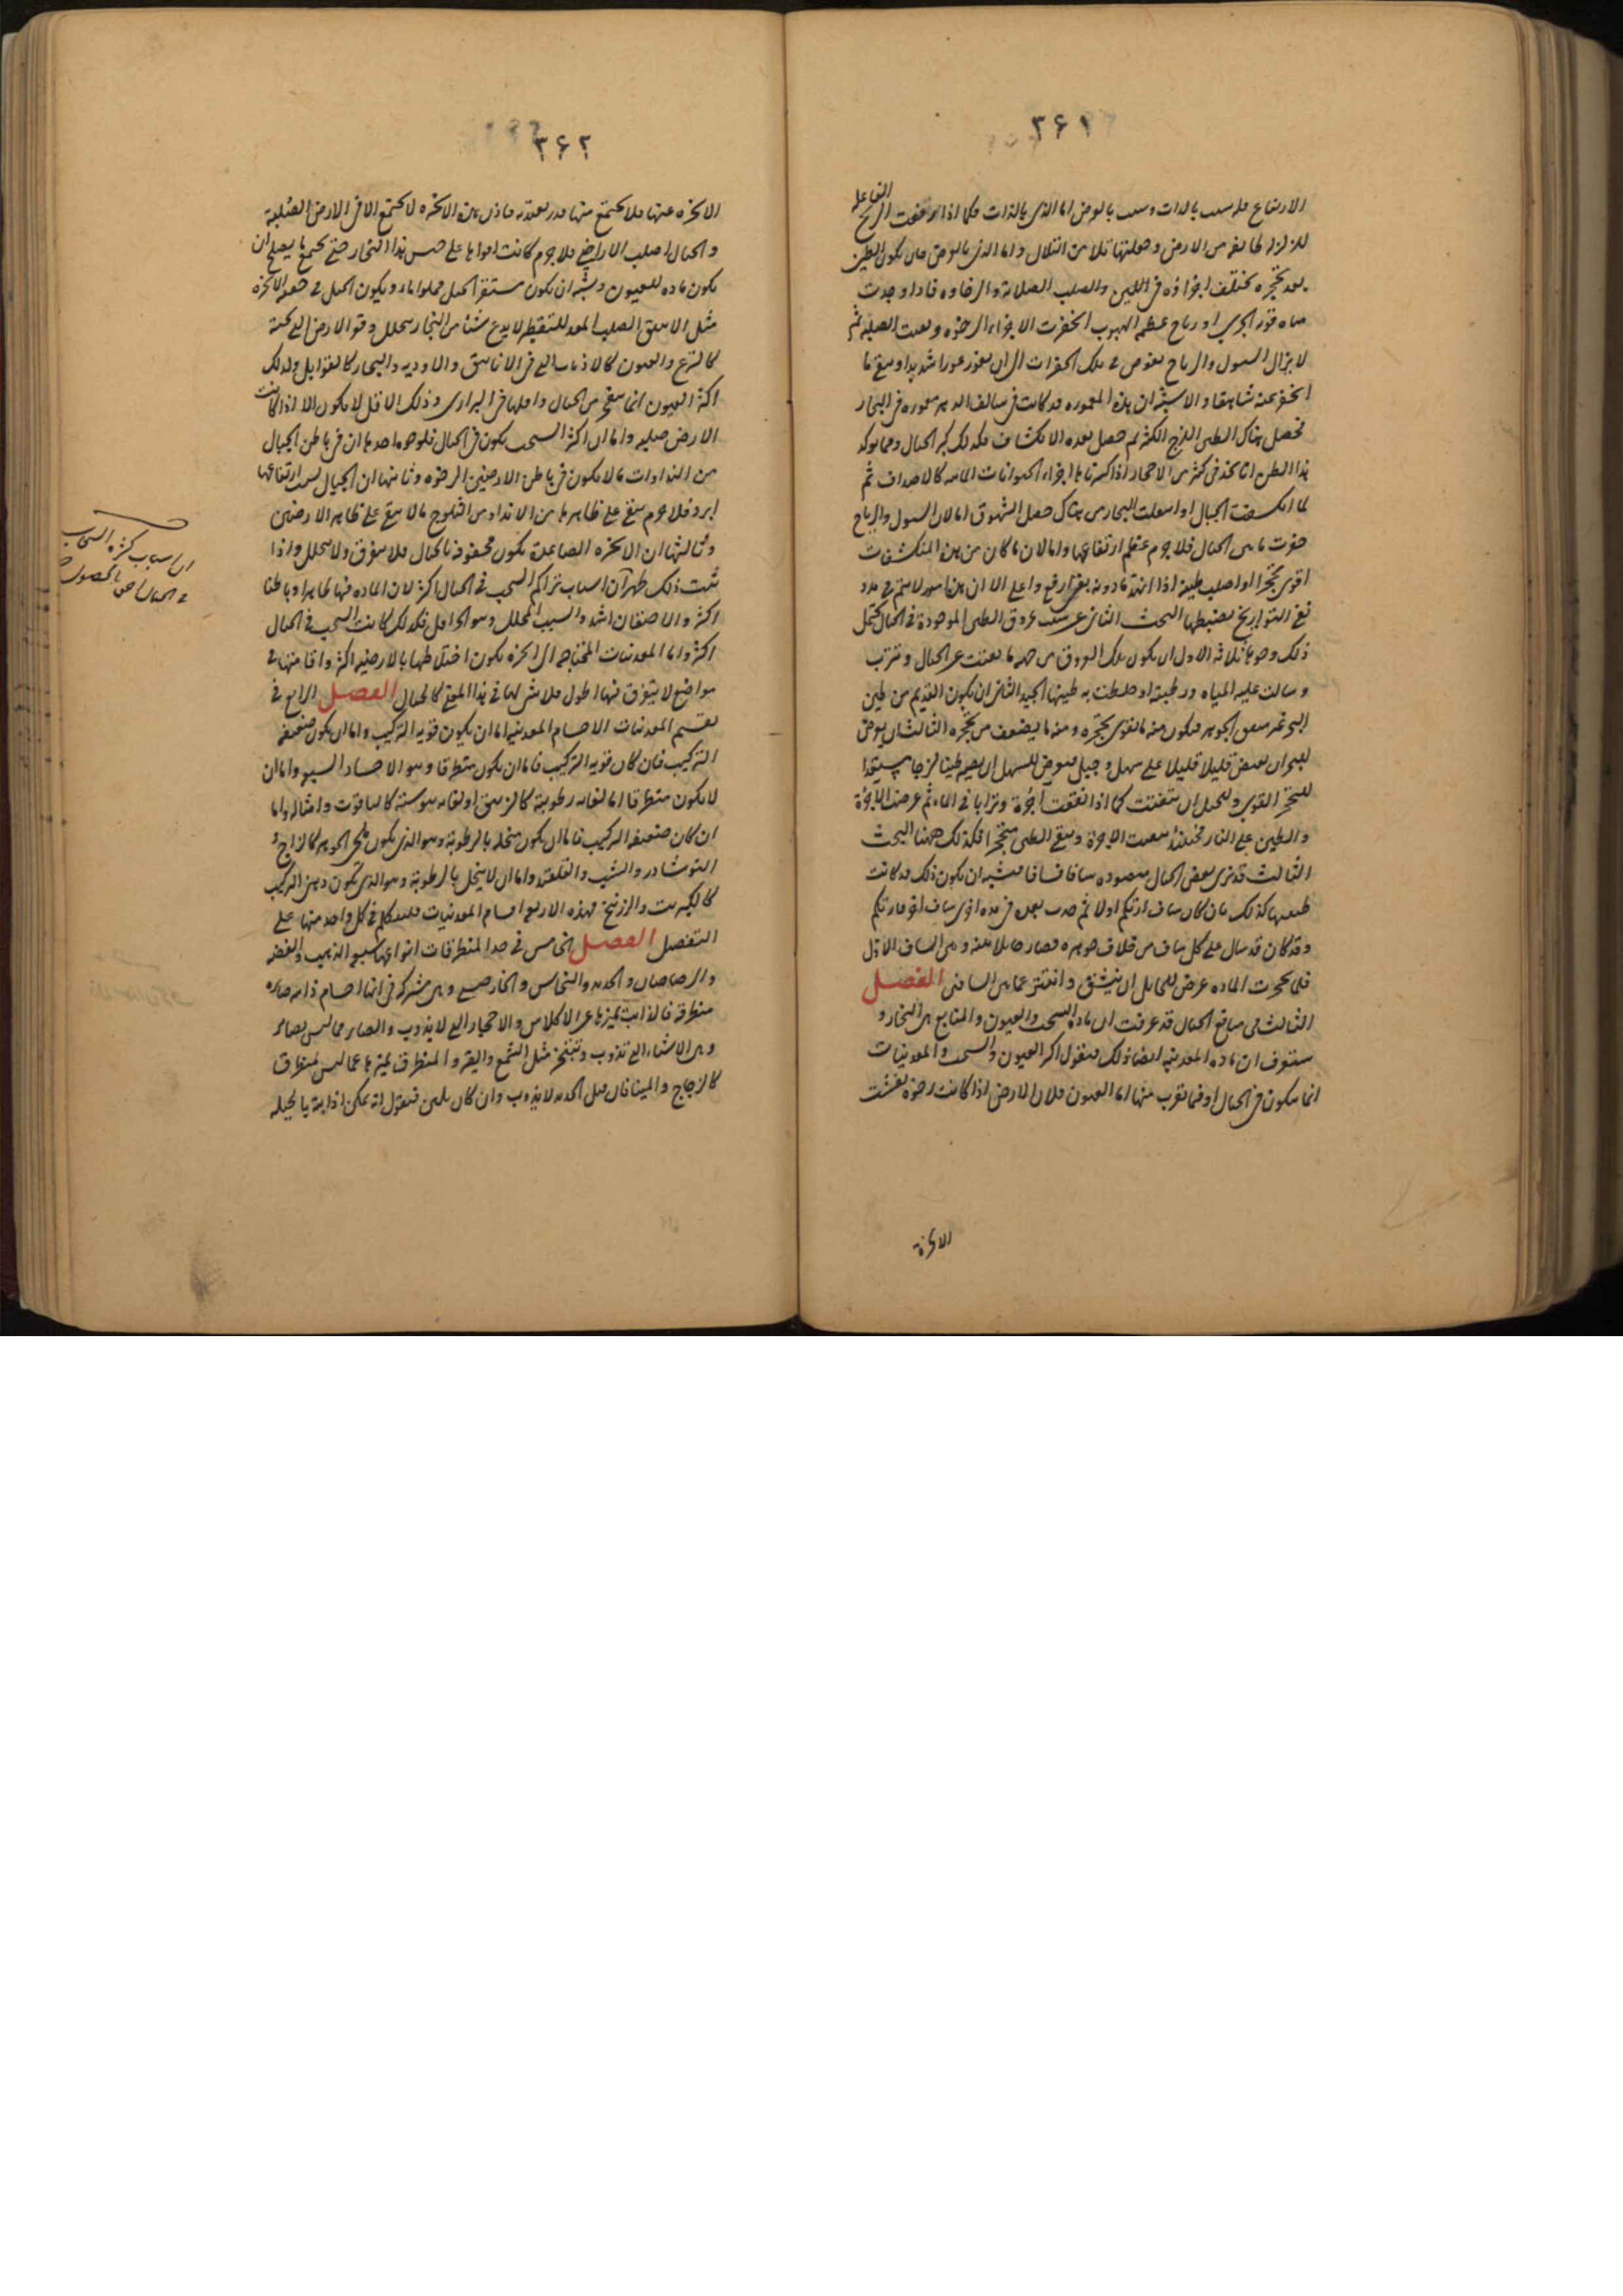 ٣۶١
الارتفاع فله سبب بالذات وسبب بالعرض اما الذي بالذات فكما اذا
الريح الفاعله
للزلزله طايفه من الارض وجعلتها تلا من التلال واما الذي بالعرض فان يكون الطين
بعد تحجره مختلف اجزاؤه في اللين والصلب الصلابة والرخاوه فاذا وجدت
مياه قوية الجري او رياح عظمه الهبوب انحفرت الاجزاء الرخوه وبقيت الصلبه ثم
لا يزال السيول والرياح تغوص في تلك الحفرات الى ان يغور غورا شديدا ويبقى ما
انحفر عنه شاهقا والاشبه ان هذه المعموره قد كانت في سالف الدهر مغموره في البحار
فحصل هناك الطين اللزج الكثير ثم حصل بعده الانكشاف فكذلك كثر الجبال ومما يؤكد
هذا الظن انا نجد في كثير من الاحجار اذا كسرناها اجزاء الحيوانات المائيه كالاصداف ثم
لما انكشفت الجبال او انتقلت البحار من هناك حصل الشهوق اما لان السيول والرياح
حفرت ما بين الجبال فلا جرم عظم ارتفاعها واما لان ما كان من هذه المنكشفات
اقوى تحجرا او اصلب طينه اذا انهد ما دونه بقي ارفع واعلى الا ان هذه امور لا تتم في مدد
تفي التواريخ بضبطها البحث الثاني عن سبب عروق الطين الموجودة في الجبال يحتمل
ذلك وجوها ثلاثه الاول ان يكون تلك العروق من جهة ما تفتت عن الجبال وتترب
وسالت عليه المياه ورطبته او خلطت به طينها الجيد الثاني ان يكون القديم من طين
البحر غير متفق الجوهر فيكون منه ما يقوى تحجره ومنه ما يضعف تحجره الثالث ان يعرض
للبحر ان يفيض قليلا قليلا على سهل وجبل فيعرض للسهل ان يصير طينا لزجا مستعدا
للتحجر القوى وللجبل ان يتفتت كما اذا نقعت آجرة وترابا في الماء ثم عرضت الآجرة
والطين على النار فحينئذ تفتت الآجرة ويبقى الطين متحجرا فكذلك ههنا البحث
الثالث قد نرى بعض الجبال منضوده سافا فسافا فيشبه ان يكون ذلك قد كانت
طينتها كذلك بان كان ساف ارتكم اولا ثم حدث بعده في مده اخرى ساف اخر فارتكم
وقد كان قد سال على كل ساف من خلاف جوهره فصار حايلا بينه وبين الساف الاخر
فلما تحجرت الماده عرض للحايل ان ينشق وانتثر عما بين السافين الفصل
الثالث في منافع الجبال قد عرفت ان مادة السحب والعيون والمنابع هي البخار و
ستعرف ان ماده المعدنيه ايضا ذلك فنقول اكثر العيون والسحب والمعدنيات
انما يتكون في الجبال او فيما تقرب منها اما العيون فلان الارض اذا كانت رخوه نفشت
الابخرة
٣۶٢
الابخره عنها فلا يجتمع منها قدر يعتد به فاذن هذه الابخره لا تجتمع الا في الارض الصلبة
والجبال اصلب الاراضي فلا جرم كانت اقواها على حبس هذا البخار حتى يجتمع ما يصلح ان
يكون ماده للعيون ويشبه ان يكون مستقر الجبل مملوا ماء ويكون الجبل في حقنه الابخره
مثل الانبيق الصلب المعد للتقطير لا يدع شيئا من البخار يتحلل وقعر الارض التي تحته
كالقرع والعيون كالاذناب التي في الانابيق والاوديه والبحار كالقوابل ولذلك
اكثر العيون انما تنفجر من الجبال واقلها في البراري وذلك الاقل لا يكون الا اذا كانت
الارض صلبه واما ان اكثر السحب يكون في الجبال فلوجوه احدها ان في باطن الجبال
من النداوات ما لا يكون في باطن الارضين الرخوه وثانيها ان الجبال بسبب ارتفاعها
ابرد فلا جرم يبقى على ظاهرها من الانداء ومن الثلوج ما لا يبقى على ظاهر الارضين
وثالثها ان الابخره الصاعدة تكون محفوفة بالجبال فلا تتفرق ولا تتحلل واذا
ثبت ذلك ظهر ان اسباب تراكم السحب في الجبال اكثر لان الماده فيها ظاهرا وباطنا
اكثر والاحتقان اشد والسبب المحلل وهو الحر اقل فلذلك كانت السحب في الجبال
اكثر واما المعدنيات المحتاجه الى ابخره يكون اختلاطها بالارضيه اكثر واقامتها في
مواضع لا يتفرق فيها اطول فلا شي لها في هذا المعنى كالجبال الفصل الرابع في
تقسيم المعدنيات الاجسام المعدنيه اما ان يكون قويه التركيب واما ان يكون ضعيفه
التركيب فان كان قويه التركيب فاما ان يكون متطرقا وهو الاجساد السبعه واما ان
لا يكون متطرقا اما لغايه رطوبته كالزيبق او لغايه يبوسته كالياقوت وامثاله واما
ان كان ضعيفه التركيب فاما ان يكون منحله بالرطوبة وهو الذي يكون ملحي الجوهر كالزاج و
النوشادر والشب والقلقند واما ان لا ينحل بالرطوبة وهو الذي يكون دهني التركيب
كالكبريت والزرنيخ فهذه الاربعه اقسام المعدنيات فلنتكلم في كل واحد منها على
التفصيل الفصل الخامس في حد المنطرقات انواعها سبعه الذهب والفضه
والرصاصان والحديد والنحاس والخارصيني وهي مشتركه في انها اجسام ذايبه صابره
منطرقه فالذايب يميزها عن الاكلاس والاحجار التي لا يذوب والصابر عما ليس بصابر
وهي الاشياء التي تذوب وتتبخر مثل الشمع والقير والمنطرق يميزها عما ليس بمنطرق
كالزجاج والمينا فان قيل الحديد لا يذوب وان كان يلين فنقول انه يمكن اذابته بالحيله
ان اسباب كثرة السحاب
في الجبال